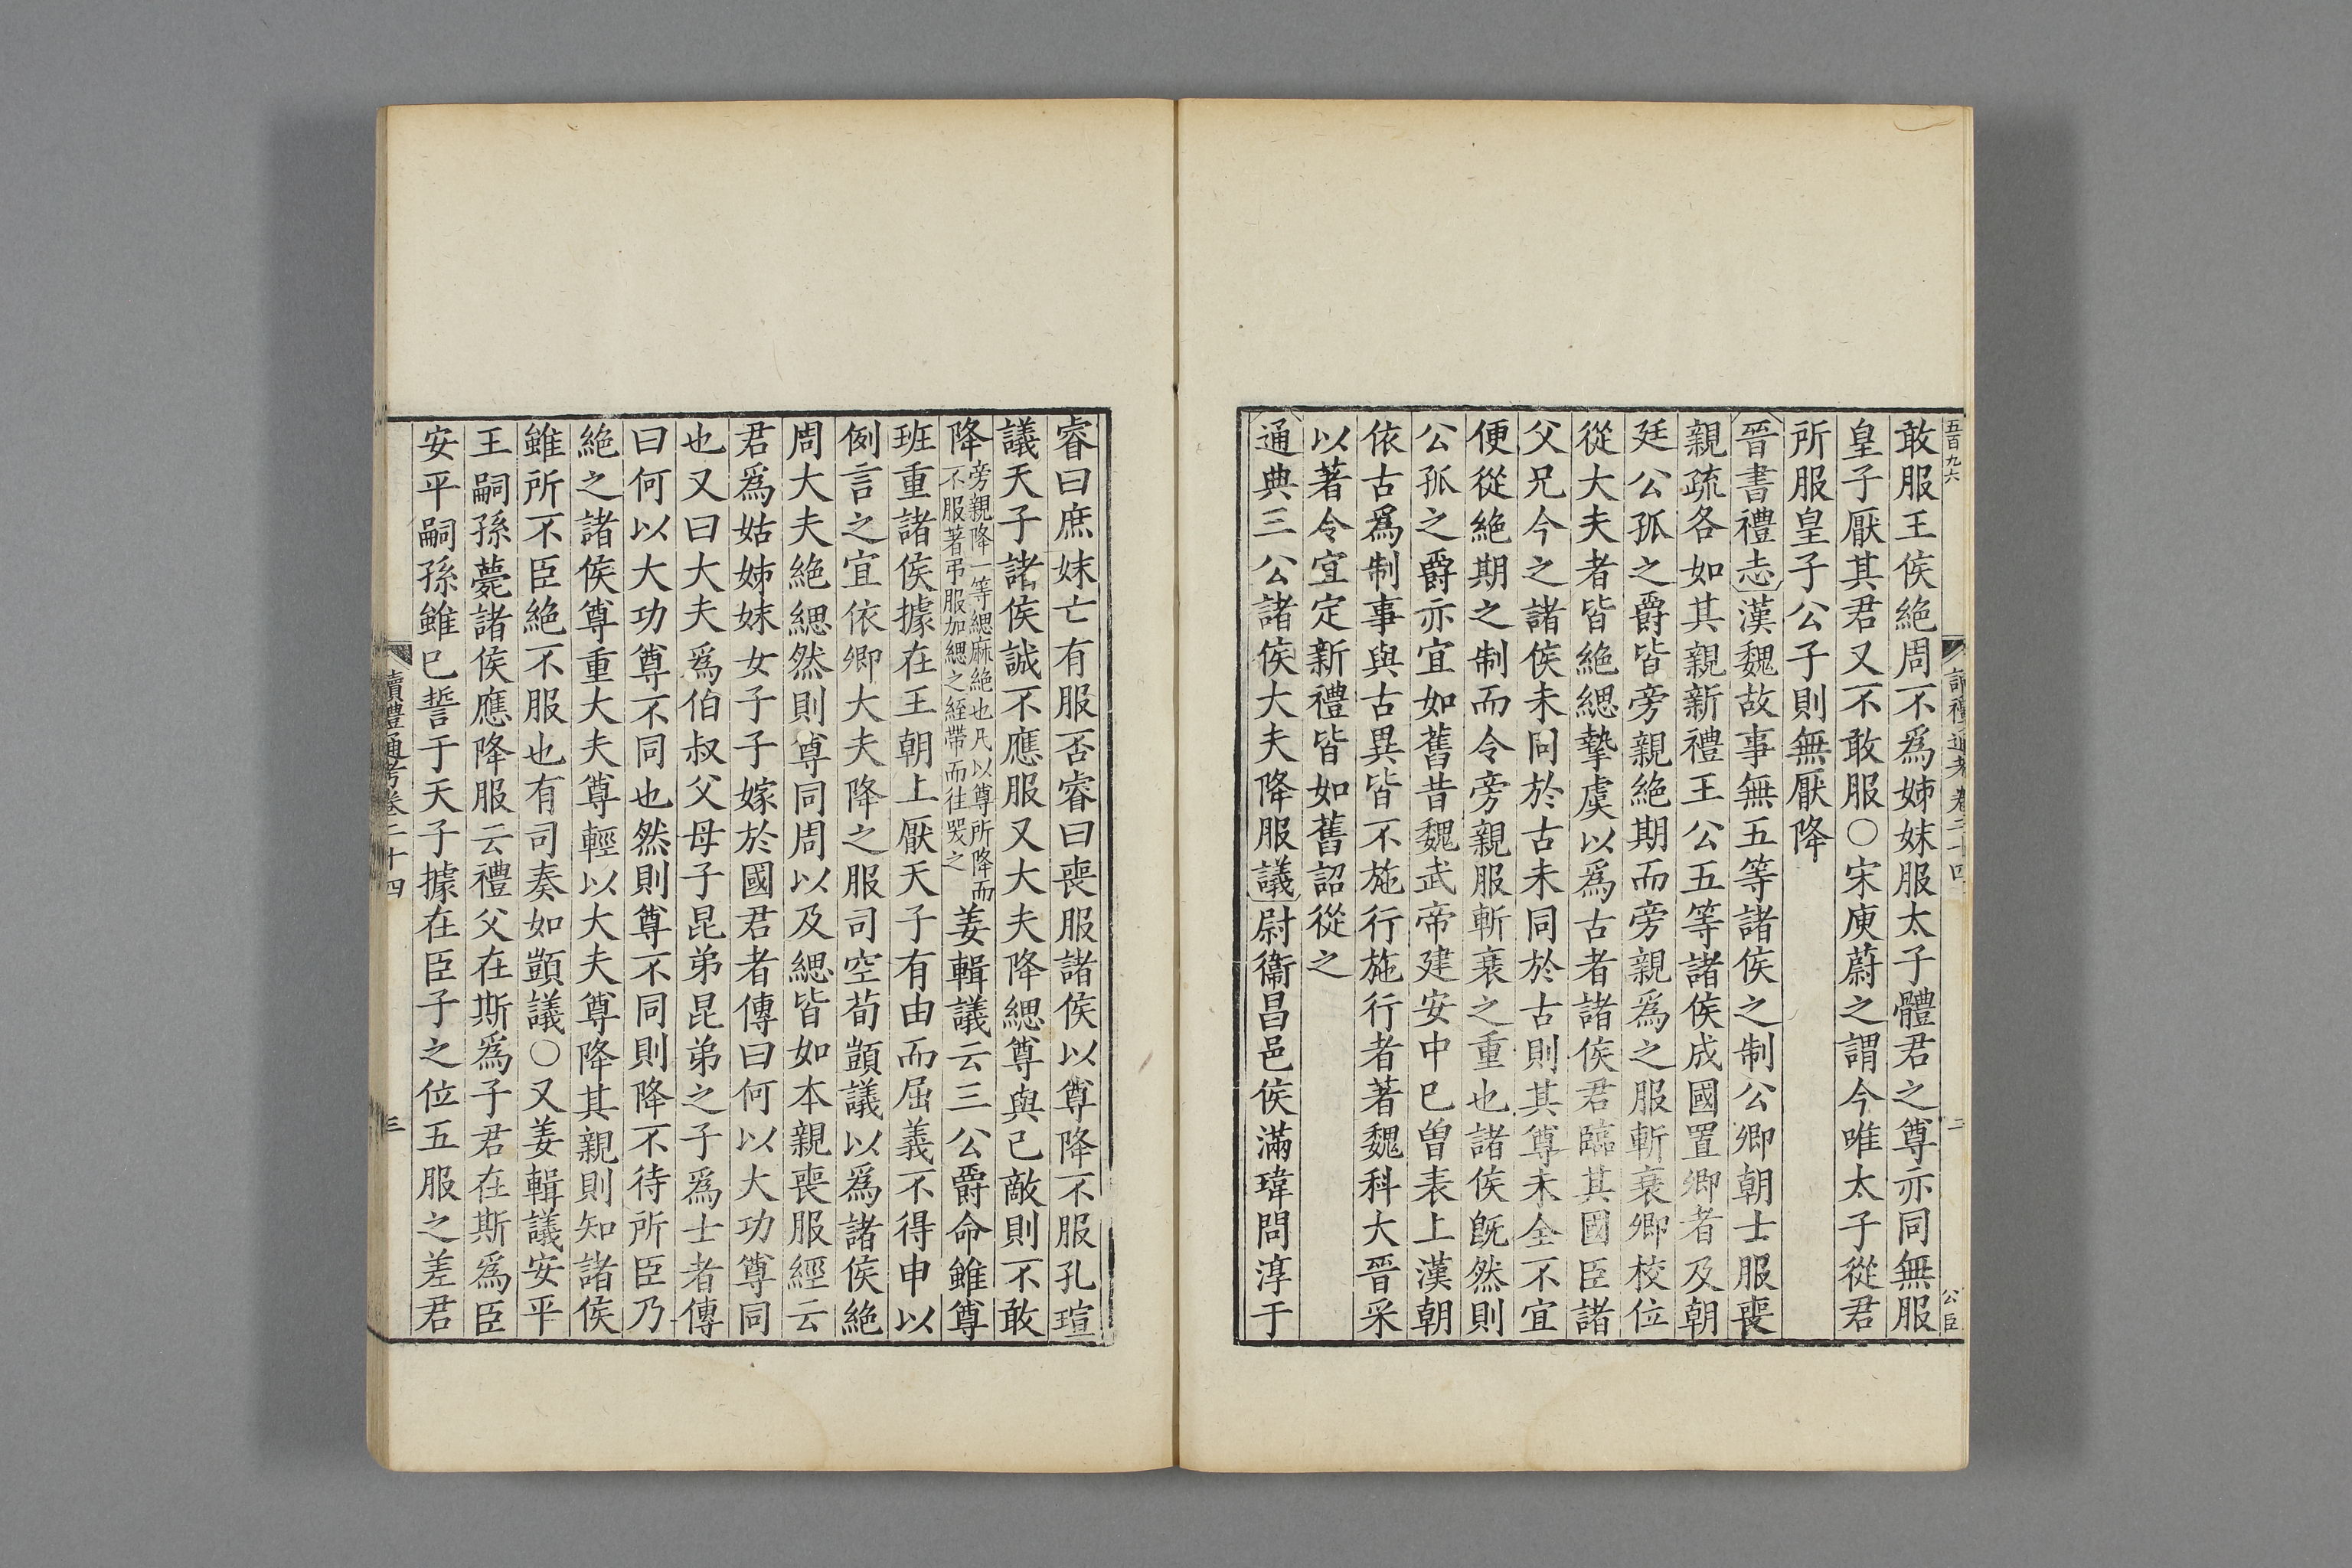 五百九六
讀禮通考卷二十四
二
公臣
敢服王侯絶周不爲姊妹服太子體君之尊亦同無服
皇子厭其君又不敢服○宋庾蔚之謂今唯太子從君
所服皇子公子則無厭降
晉書禮志漢魏故事無五等諸侯之制公卿朝士服喪
親疏各如其親新禮王公五等諸侯成國置卿者及朝
廷公孤之爵皆旁親絶期而旁親爲之服斬衰卿校位
從大夫者皆絶緦摯虞以爲古者諸侯君臨其國臣諸
父兄今之諸侯未同於古未同於古則其尊未全不宜
便從絶期之制而令旁親服斬衰之重也諸侯旣然則
公孤之爵亦宜如舊昔魏武帝建安中巳曽表上漢朝
依古爲制事與古異皆不施行施行者著魏科大晉采
以著令宜定新禮皆如舊詔從之
通典三公諸侯大夫降服議尉衞昌邑侯滿瑋問淳于
睿曰庶妹亡有服否睿曰喪服諸侯以尊降不服孔瑄
議天子諸侯誠不應服又大夫降緦尊與已敵則不敢
降旁親降一等緦麻絶也凡以尊所降而不服著弔服加緦之絰帶而往哭之姜輯議云三公爵命雖尊
班重諸侯據在王朝上厭天子有由而屈義不得申以
例言之宜依卿大夫降之服司空荀顗議以爲諸侯絶
周大夫絶緦然則尊同周以及緦皆如本親喪服經云
君爲姑姊妹女子子嫁於國君者傳曰何以大功尊同
也又曰大夫爲伯叔父母子昆弟昆弟之子爲士者傳
曰何以大功尊不同也然則尊不同則降不待所臣乃
絶之諸侯尊重大夫尊輕以大夫尊降其親則知諸侯
雖所不臣絶不服也有司奏如顗議○又姜輯議安平
王嗣孫薨諸侯應降服云禮父在斯爲子君在斯爲臣
安平嗣孫雖巳誓于天子據在臣子之位五服之差君
讀禮通考卷二十四
三